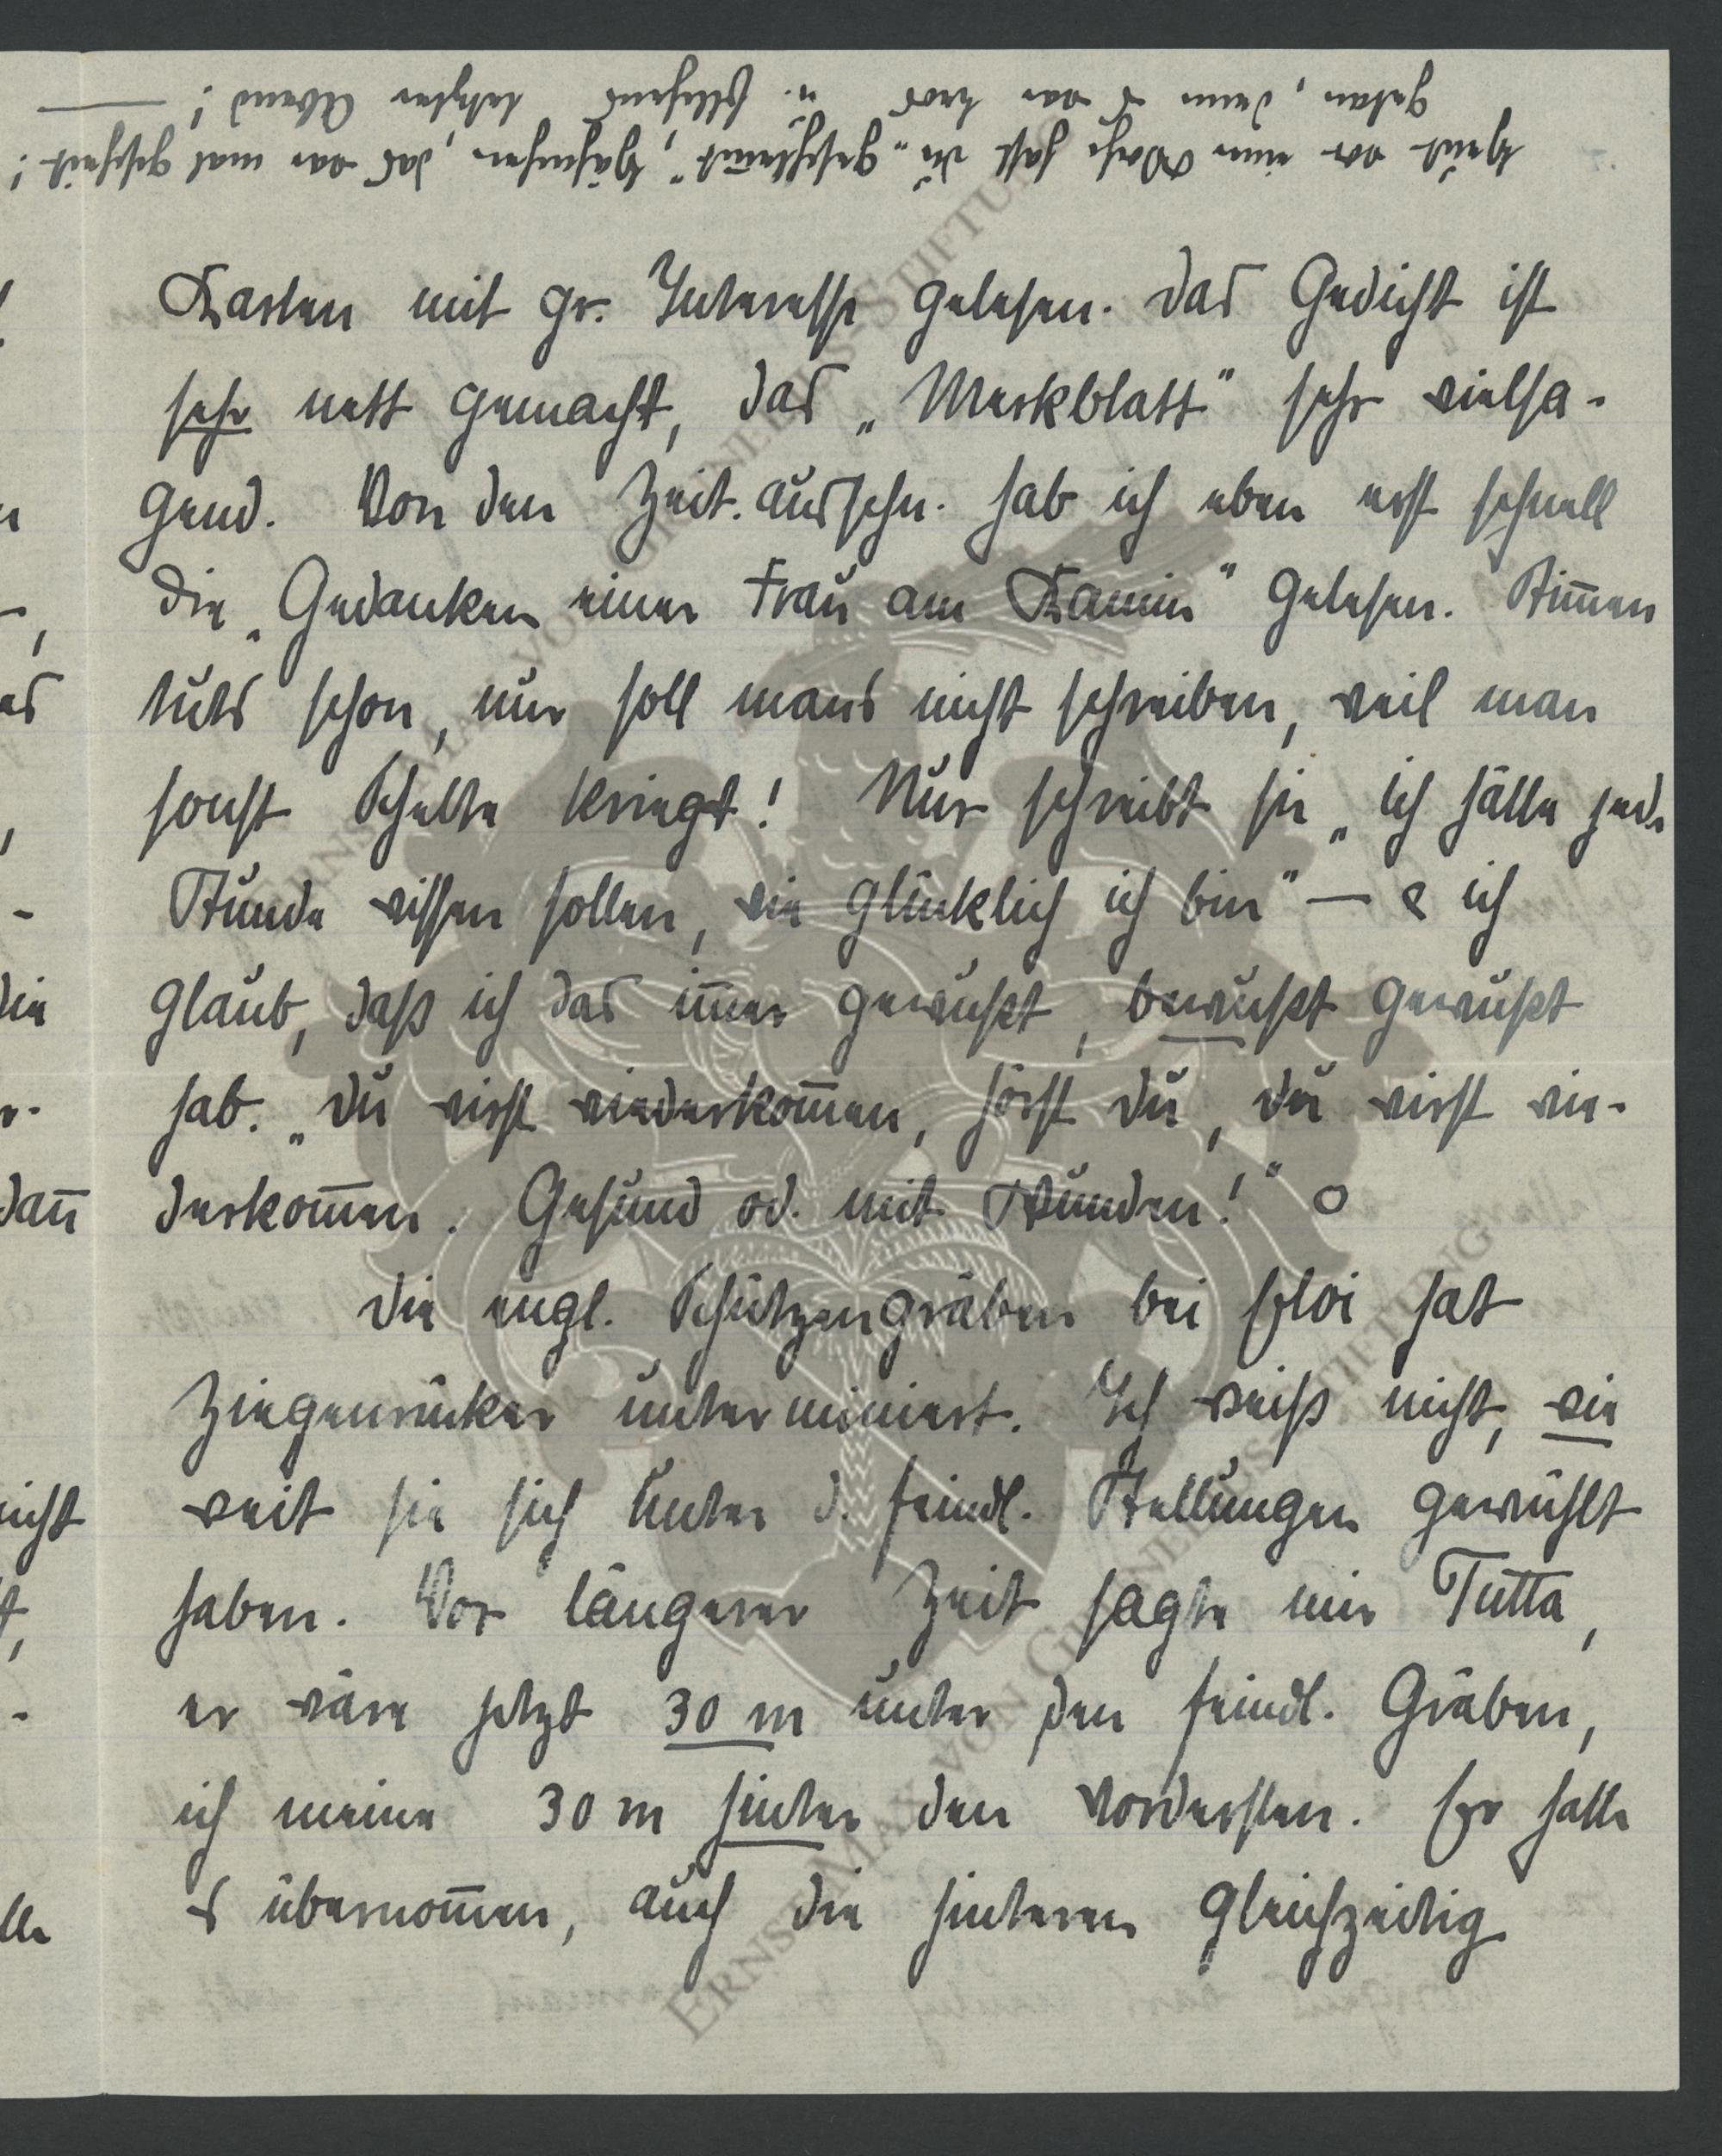 Heut vor einer Woche hast Du „geschlemt“, Häschen, das war mal gescheit!
getan, denn es war trotz u. letzter Abend! —
Karten mit gr. Interesse gelesen. Das Gedicht ist
sehr nett gemacht, das „Merkblatt“ sehr vielsa-
gend. Von den Zeit.ausschn. hab ich eben erst schnell
die „Gedanken einer Frau am Kamin“ gelesen. Stim̅en
tuts schon, nur soll mans nicht schreiben, weil man
sonst Schelte kriegt! Nur schreibt sie „ich hätte jede
Stunde wissen sollen, wie glücklich ich bin“ — u. ich
glaub, daß ich das im̅er gewußt, bewußt gewußt
hab. „Du wirst wiederkom̅en, hörst Du, Du wirst wie-
derkom̅en. Gesund od. mit Wunden!“ o
Die engl. Schützengräben bei Eloi hat
Ziegenrücker unterminiert. Ich weiß nicht, wie
weit sie sich unter d. feindl. Stellungen gewühlt
haben. Vor längerer Zeit sagte mir Tutta,
er wäre jetzt 30 m unter den feindl. Gräben,
ich meine 30 m hinter den vordersten. Er hatte
es übernom̅en, auch die hinteren gleichzeitig